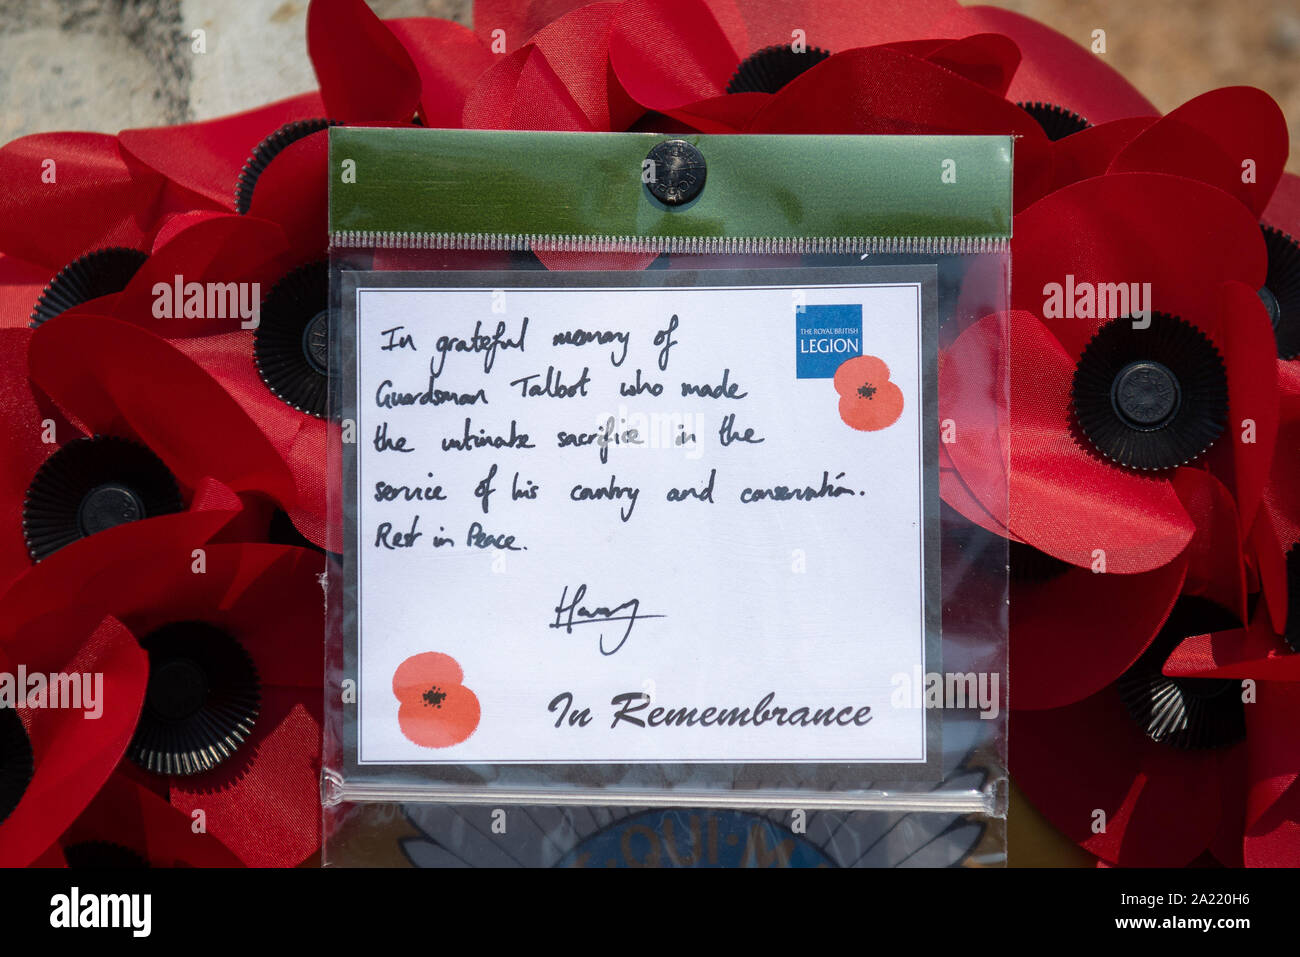 In grateful memory of
THE ROYAL BRITISH
LEGION
Guardsman Talbot who made
the ultimate sacrifice in the
service of his country and conservation.
Rest in Peace.
Harry
In Remembrance
alamy
Image ID: 2A220H6
www.alamy.com